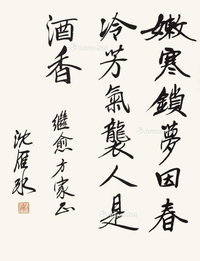 嫩寒鎖夢因春
冷芳氣襲人是
酒香
繼愈方家正
沈雁冰